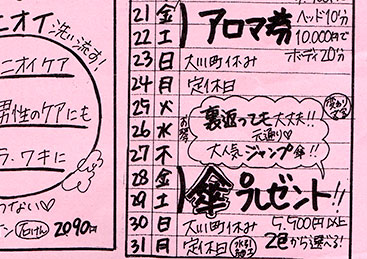 ニオイ 洗い流す!
ニオイケア
男性のケアにも
ラ、ワキに
ン 石けん 2090円
21 金
22 土
アロマ券
ヘッド10分
10,000円で
ボディ20分
23 日 大川町休み
24 月 定休日
25 火
26 水
27 木
裏返っても大丈夫!!
元通り♡
大人気ジャンプ傘!!
28 金
29 土
傘プレゼント!!
30 日 大川町休み 5,500円以上
31 月 定休日 2色から選べる!